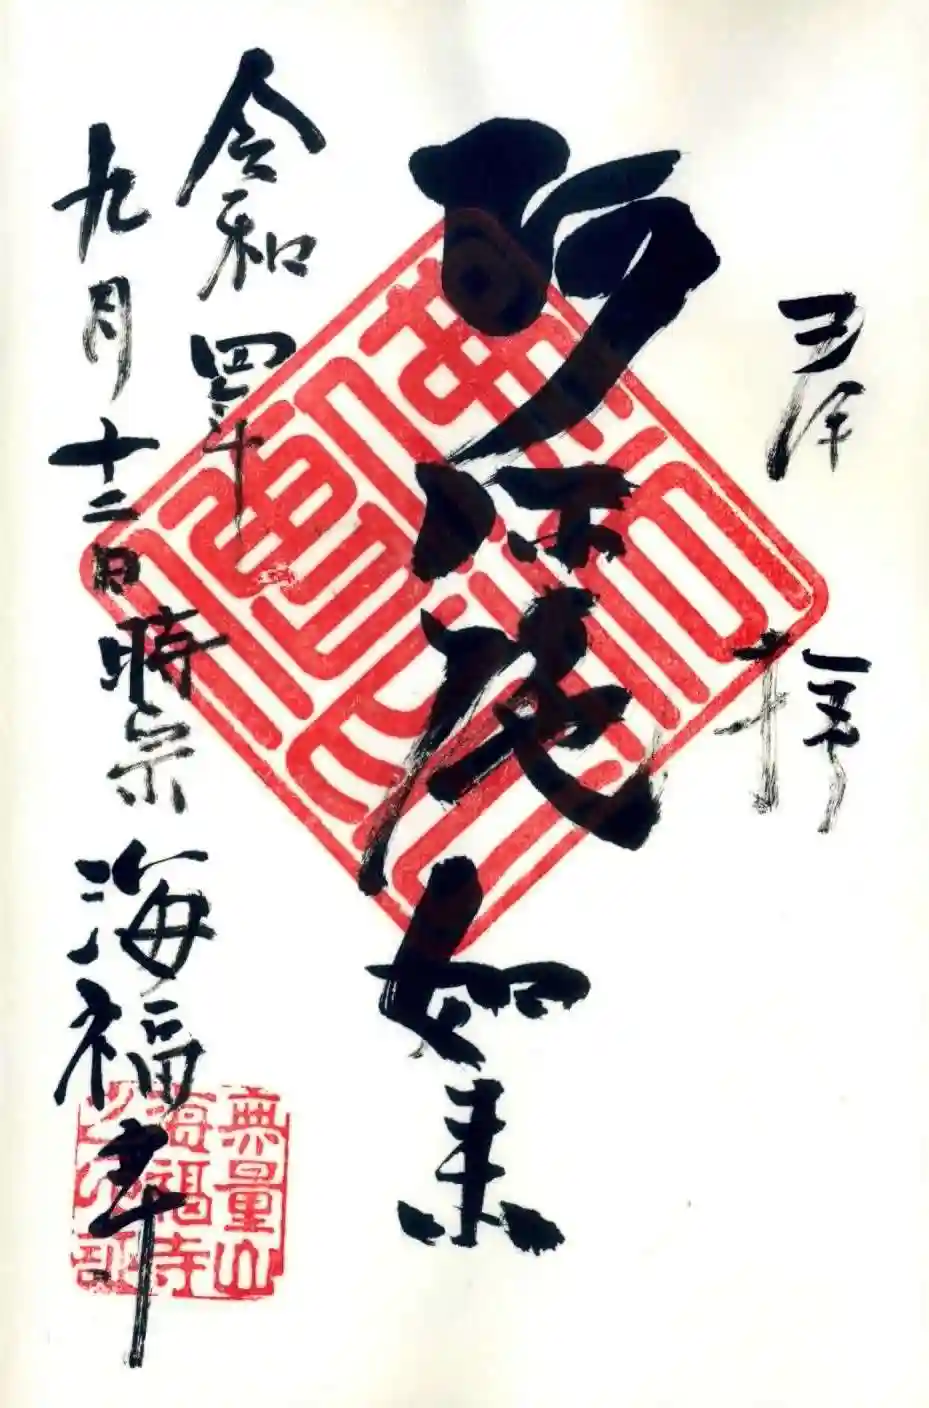 拝
阿弥陀如来
令和四年
九月十二日 時宗 海福寺
無量山
海福寺